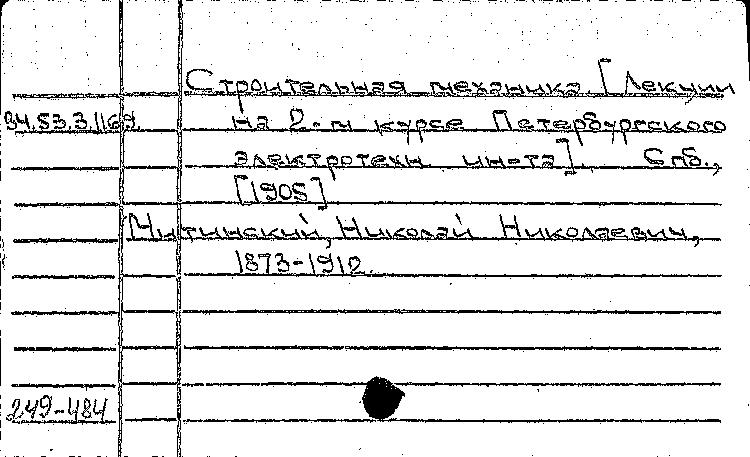 Строительная механика. [Лекции
34.53.3.1169. на 2-м курсе Петербургского
электротехн ин-та]. Спб.,
[1905]
Митинский, Николай Николаевич,
1873-1912.
249-484